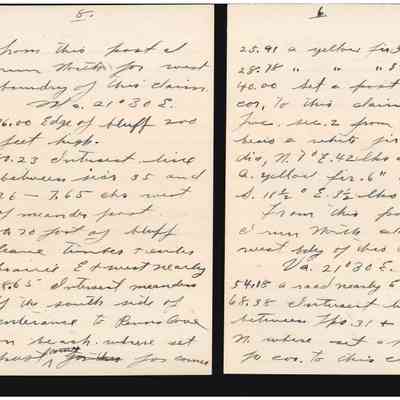 5.
from this post I
run North for west
boundry of this claim
Va. 21° 30 E.
36.00 Edge of bluff 200
feet high.
50.23 Intersect line
between secs 35 and
26 - 7.65 chs west
of meander post.
At 20 foot of bluff
leave timber & enter
prairie E & west nearly
68.65 Intersect meanders
of the south side of
enterance to Penns Cove
on beach. where set
post for corner
6.
25.91 a yellow fir
28.78 " " "
40.00 Set a post
cor. to this claim
sec. 2 from
bears a white fir
dia, N. 7° E. 42 lks
A. yellow fir. 6"
S. 18½° E. 8½ lks
From this po
I run North al
west bdy of this
Va. 21° 30 E.
54.08 a road nearly E
68.38 Intersect
between Tps. 31 &
N. where set a
to cor. to this c